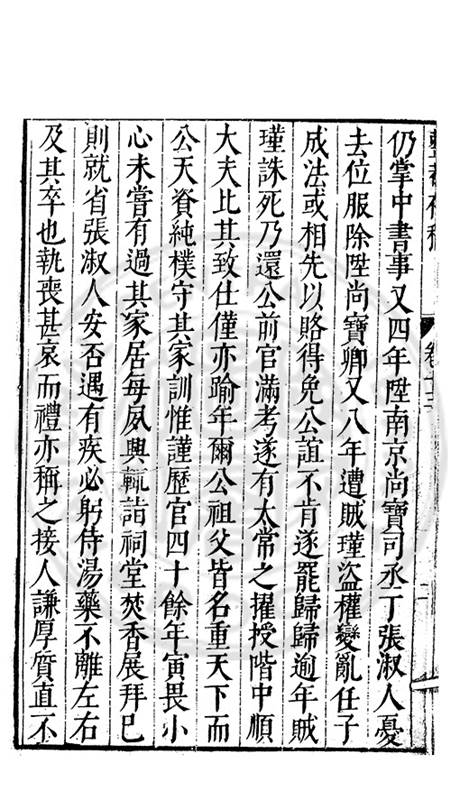 卷十三
仍掌中書事又四年陞南京尚寶司丞丁張淑人憂
去位服除陞尚寶卿又八年遭賊瑾盜權變亂任子
成法或相先以賂得免公誼不肯遂罷歸歸逾年賊
瑾誅死乃還公前官滿考遂有太常之擢授階中順
大夫比其致仕僅亦踰年爾公祖父皆名重天下而
公天資純樸守其家訓惟謹歷官四十餘年寅畏小
心未嘗有過其家居每夙興輒詣祠堂焚香展拜已
則就省張淑人安否遇有疾必躬侍湯藥不離左右
及其卒也執喪甚哀而禮亦稱之接人謙厚質直不